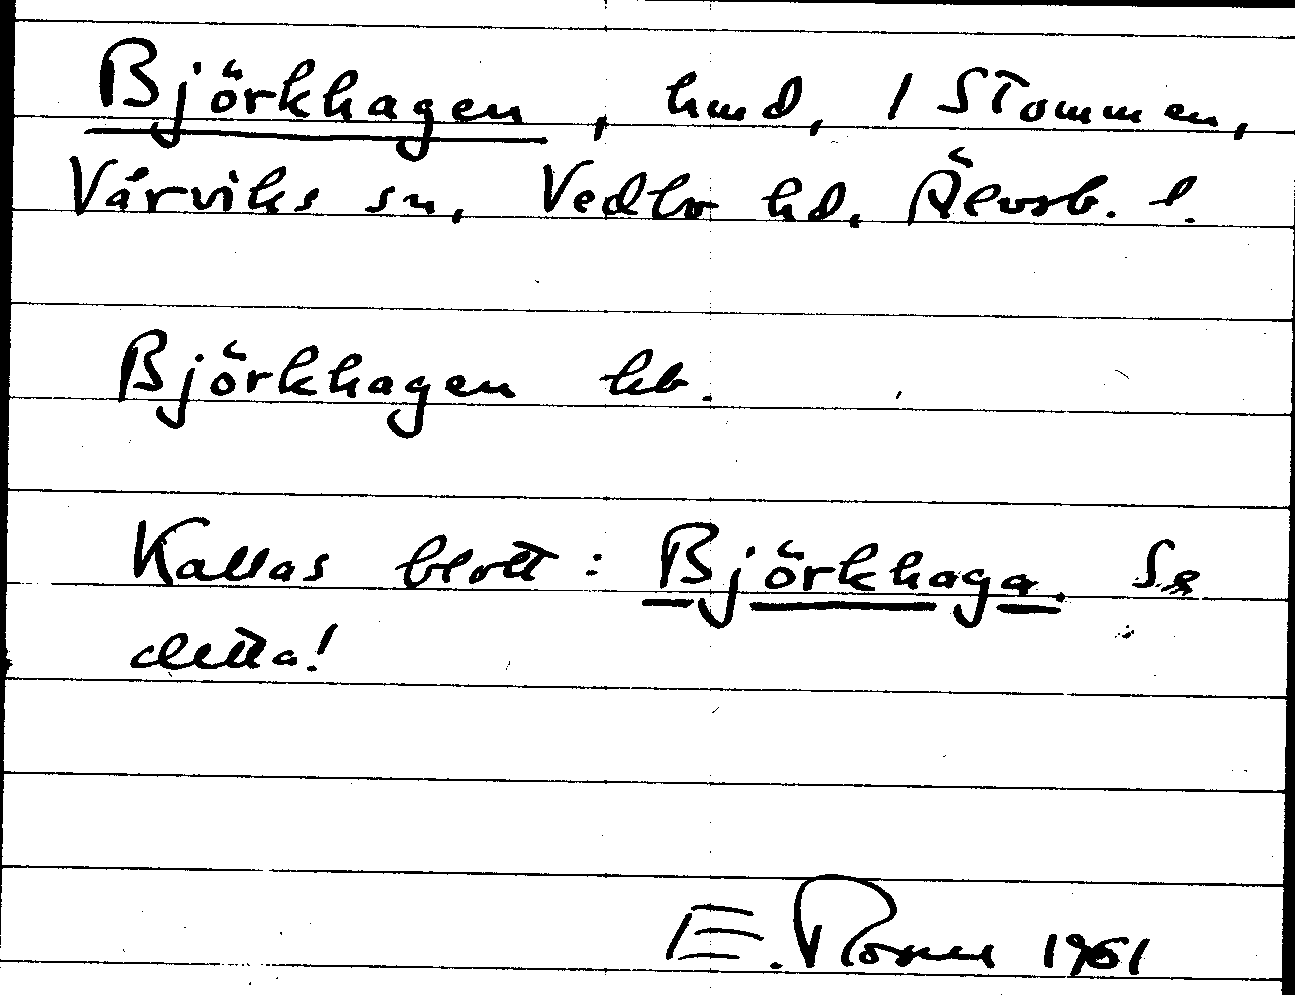 Björkhagen, hmd, 1 Stommen,
Vårviks sn, Vedbo hd, Älvsb. l.
Björkhagen kb.
Kallas blott: Björkhaga. Se
detta!
E. 1961